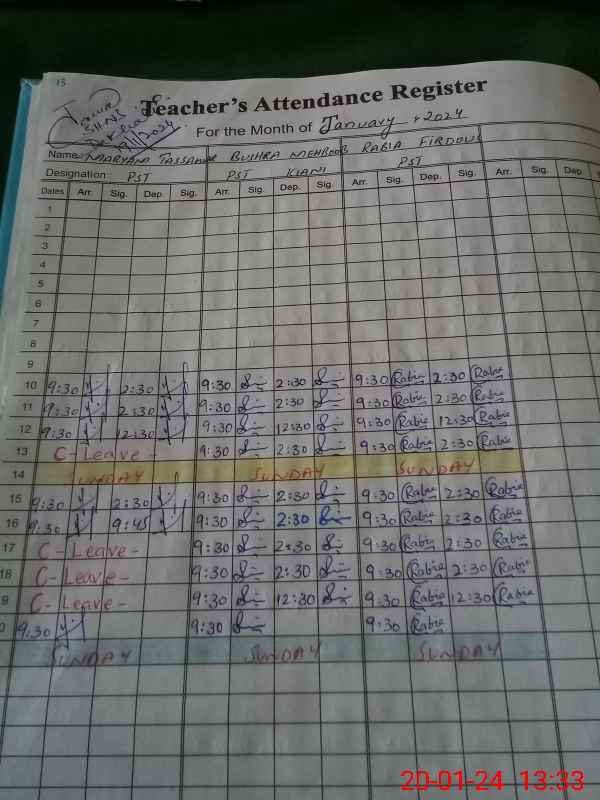 13
Teacher's Attendance Register
19/1/2024
For the Month of January, 2024
Name: MARYAM TASSAWAR BUSHRA MEHBOOB RABIA FIRDOUS
Designation: PST PST KIANI PST
Dates Arr. Sig. Dep. Sig. Arr. Sig. Dep. Sig. Arr. Sig. Dep. Sig. Arr. Sig. Dep.
1
2
3
4
5
6
7
8
9
10 9:30 2:30 9:30 2:30 9:30 Rabia 2:30 Rabia
11 9:30 2:30 9:30 2:30 9:30 Rabia 2:30 Rabia
12 9:30 12:30 9:30 12:30 9:30 Rabia 12:30 Rabia
13 C-Leave- 9:30 2:30 9:30 Rabia 2:30 Rabia
14 SUNDAY SUNDAY SUNDAY
15 9:30 2:30 9:30 2:30 9:30 Rabia 2:30 Rabia
16 9:30 9:45 9:30 2:30 9:30 Rabia 2:30 Rabia
17 C-Leave- 9:30 2:30 9:30 Rabia 2:30 Rabia
18 C-Leave- 9:30 2:30 9:30 Rabia 2:30 Rabia
9 C-Leave- 9:30 12:30 9:30 Rabia 12:30 Rabia
0 9:30 9:30 9:30 Rabia
SUNDAY SUNDAY SUNDAY
20-01-24 13:33